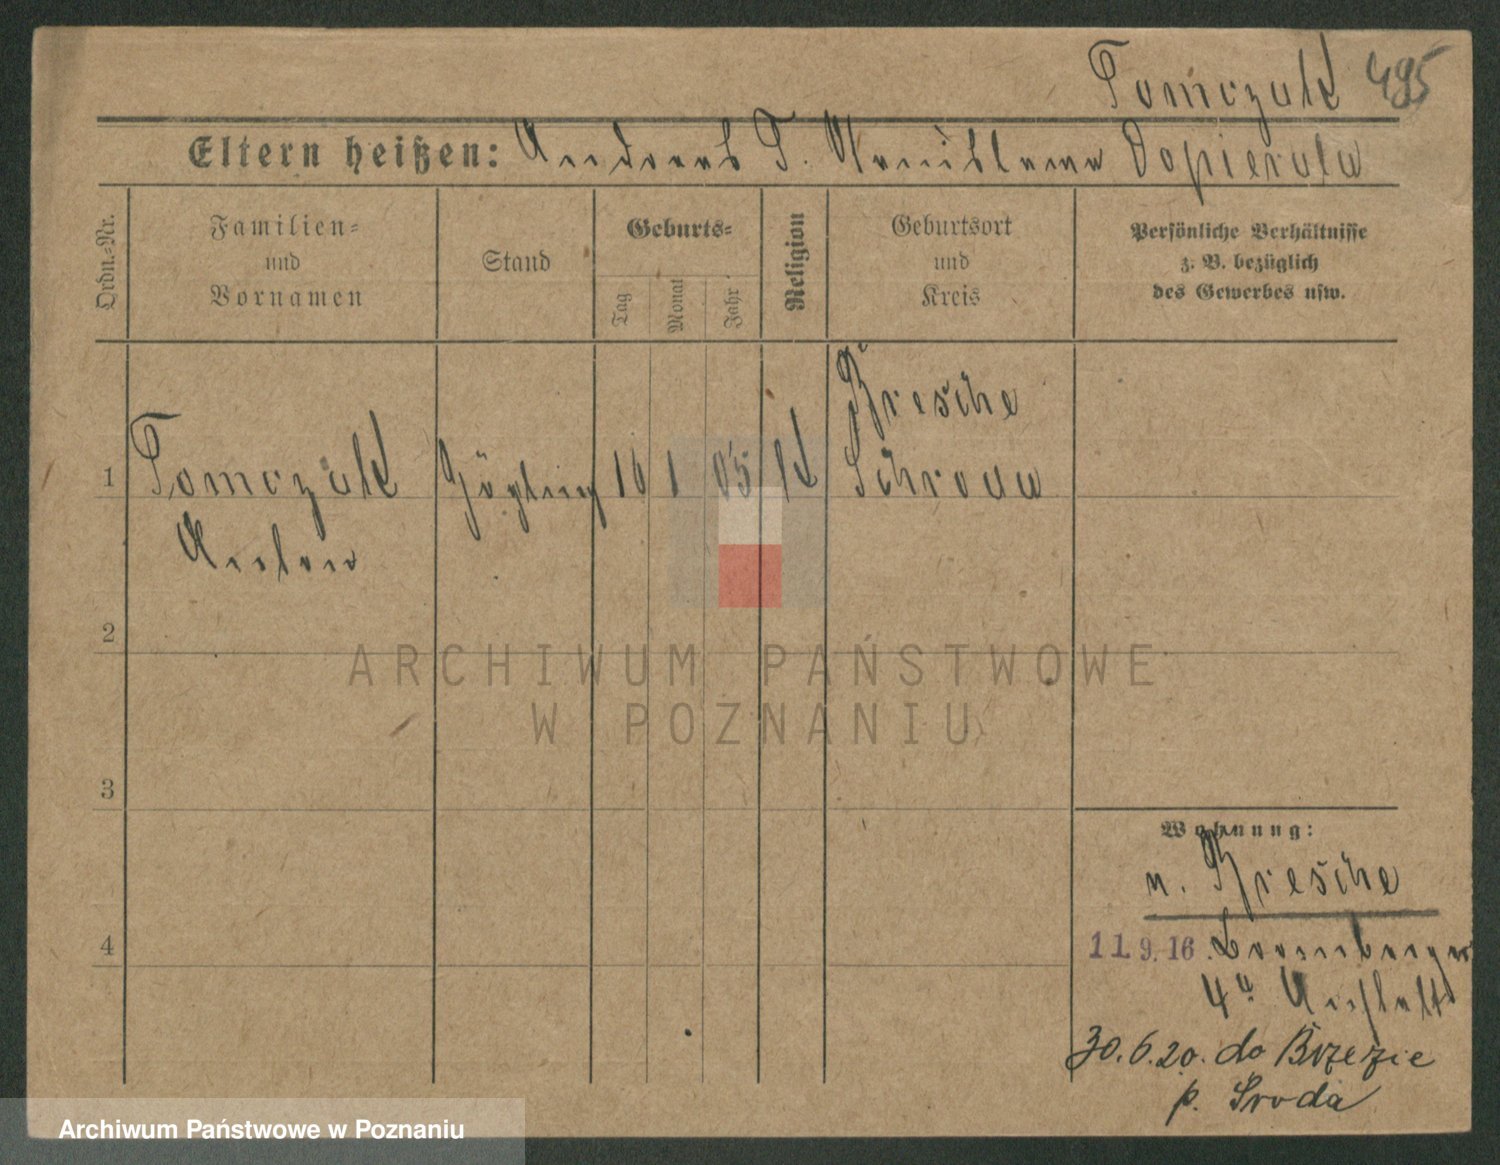 Tomczak 495
Eltern heißen: Andreas T. Stanislawa Dopierala
Ordn.-Nr.
Familien=
und
Vornamen
Stand
Geburts=
Tag
Monat
Jahr
Religion
Geburtsort
und
Kreis
Persönliche Verhältnisse
z. B. bezüglich
des Gewerbes usw.
Bresche
1 Tomczak Zögling 10 1 05 K Schroda
Anton
2
3
4
Wohnung:
n. Bresche
11. 9. 16. Brombergerstr
4 a Anstalt
30.6.20. do Brzezie
p. Środa
ARCHIWUM PAŃSTWOWE
W POZNANIU
Archiwum Państwowe w Poznaniu